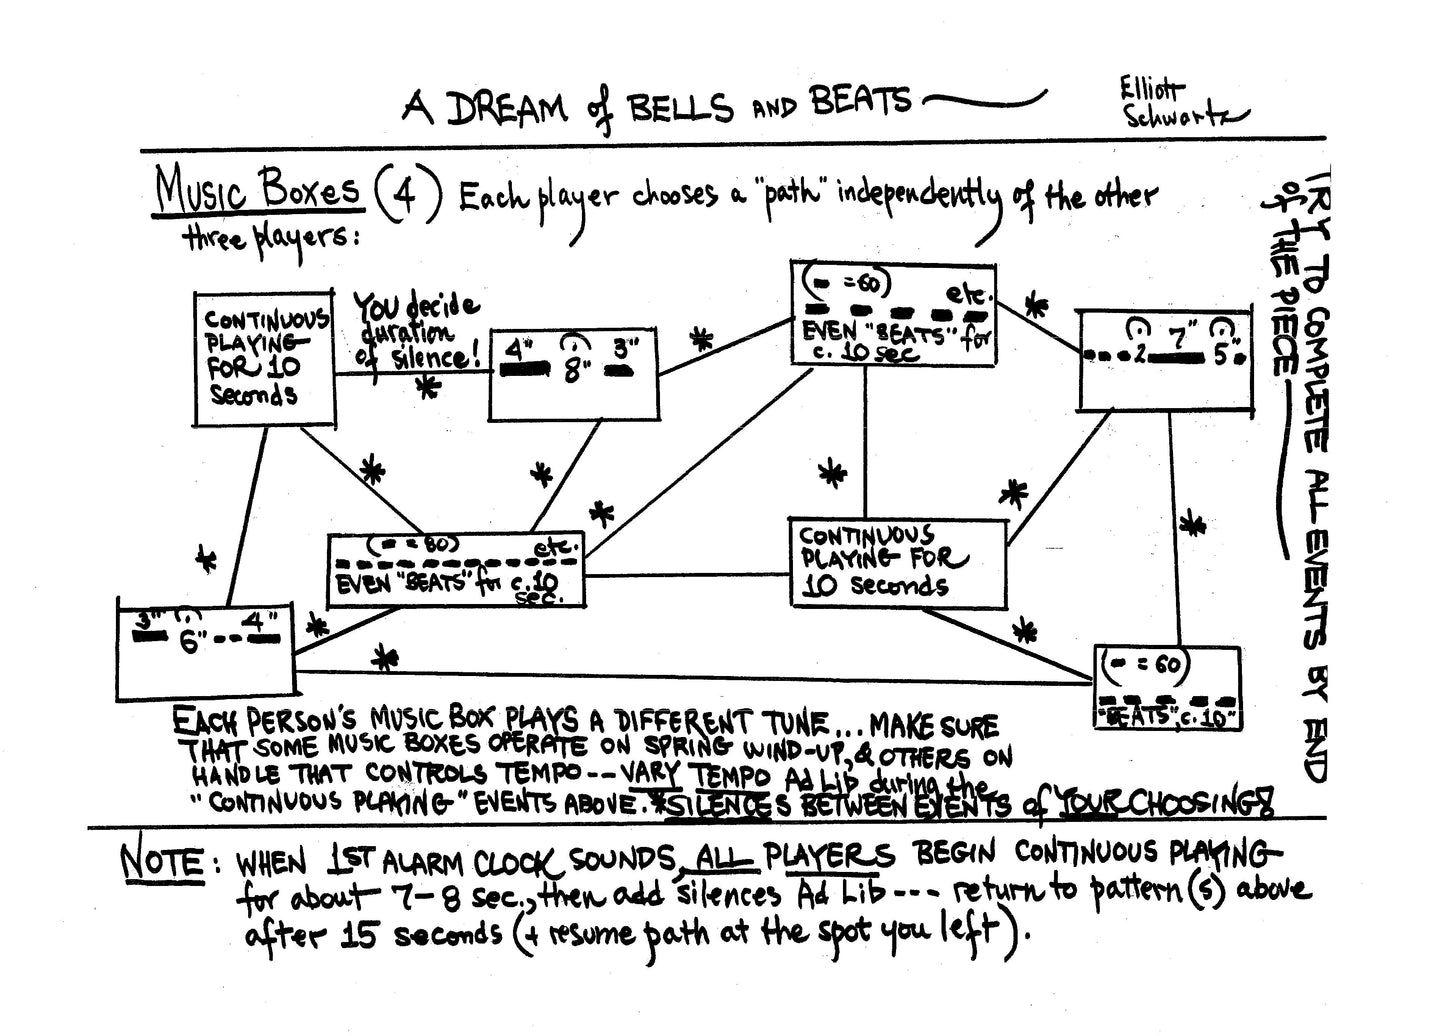 A DREAM of BELLS AND BEATS
Elliott
Schwartz
MUSIC BOXES (4) Each player chooses a "path" independently of the other
three players:
TRY TO COMPLETE ALL EVENTS BY END
of THE PIECE
CONTINUOUS
PLAYING
FOR 10
Seconds
YOU decide
duration
of silence!
*
4" 8" 3"
*
( = 60)
etc.
EVEN "BEATS" for
c. 10 sec
*
2 7" 5"
*
*
*
*
*
*
*
( = 80)
etc.
EVEN "BEATS" for c. 10
sec.
CONTINUOUS
PLAYING FOR
10 seconds
3" 6" 4"
*
*
*
( = 60)
"BEATS", c. 10"
EACH PERSON'S MUSIC BOX PLAYS A DIFFERENT TUNE... MAKE SURE
THAT SOME MUSIC BOXES OPERATE ON SPRING WIND-UP, & OTHERS ON
HANDLE THAT CONTROLS TEMPO -- VARY TEMPO Ad Lib during the
"CONTINUOUS PLAYING" EVENTS ABOVE. *SILENCES BETWEEN EVENTS of YOUR CHOOSING!
NOTE: WHEN 1ST ALARM CLOCK SOUNDS, ALL PLAYERS BEGIN CONTINUOUS PLAYING
for about 7-8 sec., then add silences Ad Lib --- return to pattern(s) above
after 15 seconds (+ resume path at the spot you left).